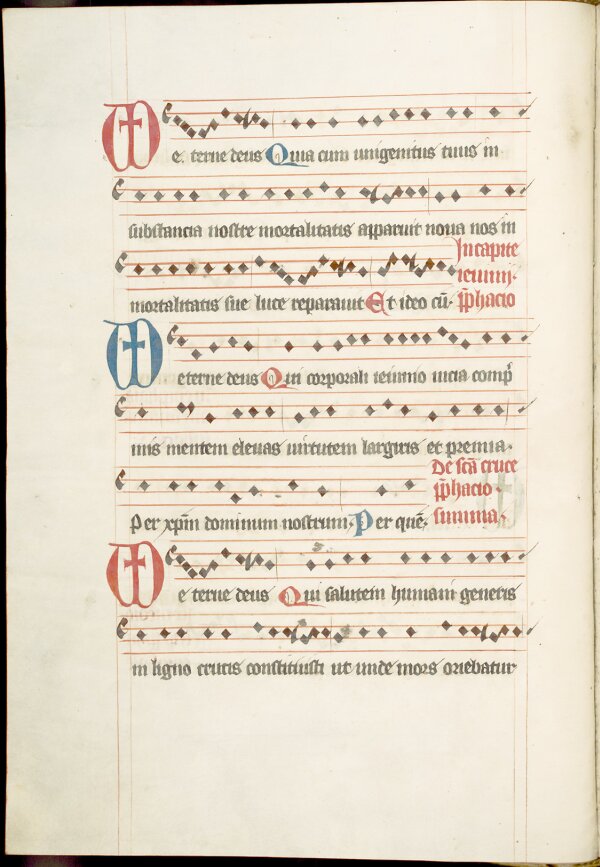 e. terne deus Quia cum unigenitus tuus in
substancia nostre mortalitatis apparuit noua nos in
In capite
mortalitatis sue luce reparauit Et ideo cū.
ieiunij.
p̄phacio
eterne deus Qui corporali ieiunio uicia comp̄
mis mentem eleuas uirtutem largiris et premia.
De scā cruce
p̄phacio.
Per xp̄m dominum nostrum. Per quē.
summa.
e terne deus Qui salutem humani generis
in ligno crucis constituisti ut unde mors oriebatur